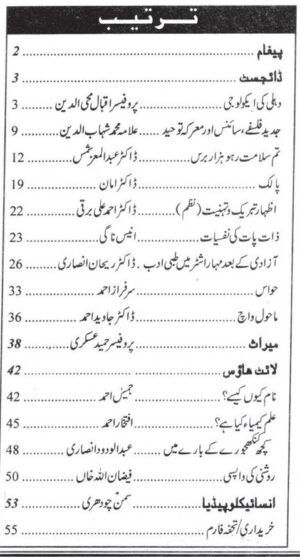 ترتیب
پیغام ........ 2
ڈائجسٹ ........ 3
دہلی کی ایکولوجی ........ پروفیسر اقبال محی الدین ........ 3
جدید فلسفے، سائنس اور معرکہ توحید ........ علامہ محمد شہاب الدین ........ 9
تم سلامت رہو ہزار برس ........ ڈاکٹر عبدالمعز شمس ........ 12
پالک ........ ڈاکٹر امان ........ 19
اظہار تبریک و تہنیت (نظم) ........ ڈاکٹر احمد علی برقی ........ 22
ذات پات کی نفسیات ........ انیس ناگی ........ 23
آزادی کے بعد مہاراشٹر میں طبی ادب . ڈاکٹر ریحان انصاری ........ 26
حواس ........ سرفراز احمد ........ 33
ماحول واچ ........ ڈاکٹر جاوید احمد ........ 36
میراث ........ پروفیسر حمید عسکری ........ 38
لائٹ ھاؤس ........ 42
نام کیوں کیسے؟ ........ جمیل احمد ........ 42
علم کیمیاء کیا ہے؟ ........ افتخار احمد ........ 45
کچھ کنکھجورے کے بارے میں ........ عبدالودود انصاری ........ 48
روشنی کی واپسی ........ فیضان اللہ خاں ........ 50
انسائیکلوپیڈیا ........ سمن چودھری ........ 53
خریداری/تحفہ فارم ........ 55